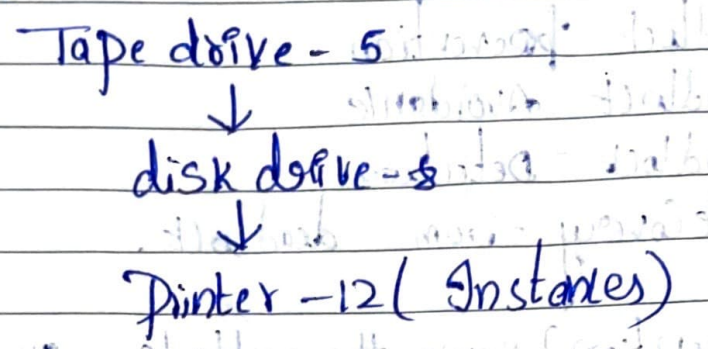 Tape drive - 5
↓
disk drive - 8
↓
Printer - 12 ( Instances)